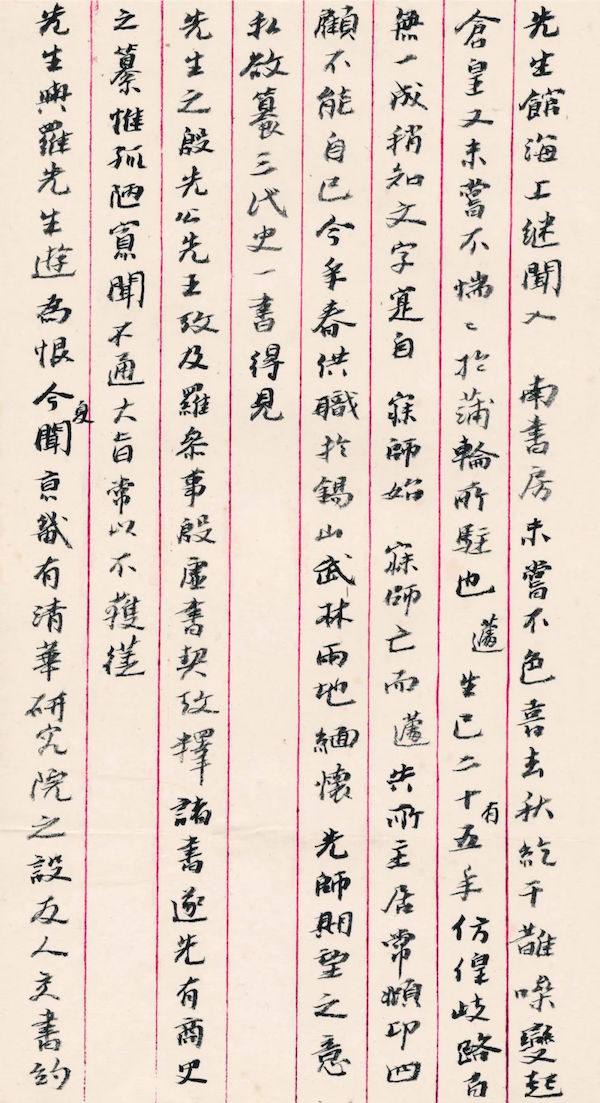 先生館海上繼聞入 南書房未嘗不色喜去秋紇干䧿噪變起
倉皇又未嘗不惴〻於蒲輪所駐也 蘧生已二十有五年仿偟歧路百
無一成稍知文字寔自 寐師始 寐師亡而蘧失所主居常頫卬四
顧不能自已今年春供職於錫山武林兩地緬懷 先師期望之意
私欲纂三代史一書得見
先生之殷先公先王攷及羅叅事殷虛書契攷擇諸書遂先有商史
之纂惟孤陋寡聞不通大旨常以不獲從
先生與羅先生遊為恨今夏聞京畿有清華研究院之設友人交書約